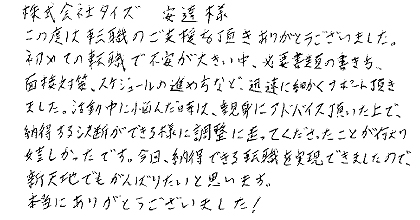 株式会社タイズ 安達様
この度は転職のご支援を頂きありがとうございました。
初めての転職で不安が大きい中、必要書類の書き方、
面接対策、スケジュールの進め方など、迅速に細かくサポート頂き
ました。活動中に悩んだ時は、親身にアドバイス頂いた上で、
納得する決断ができる様に調整に走ってくださったことが何より
嬉しかったです。今回、納得できる転職を実現できましたので、
新天地でもがんばりたいと思います。
本当にありがとうございました!